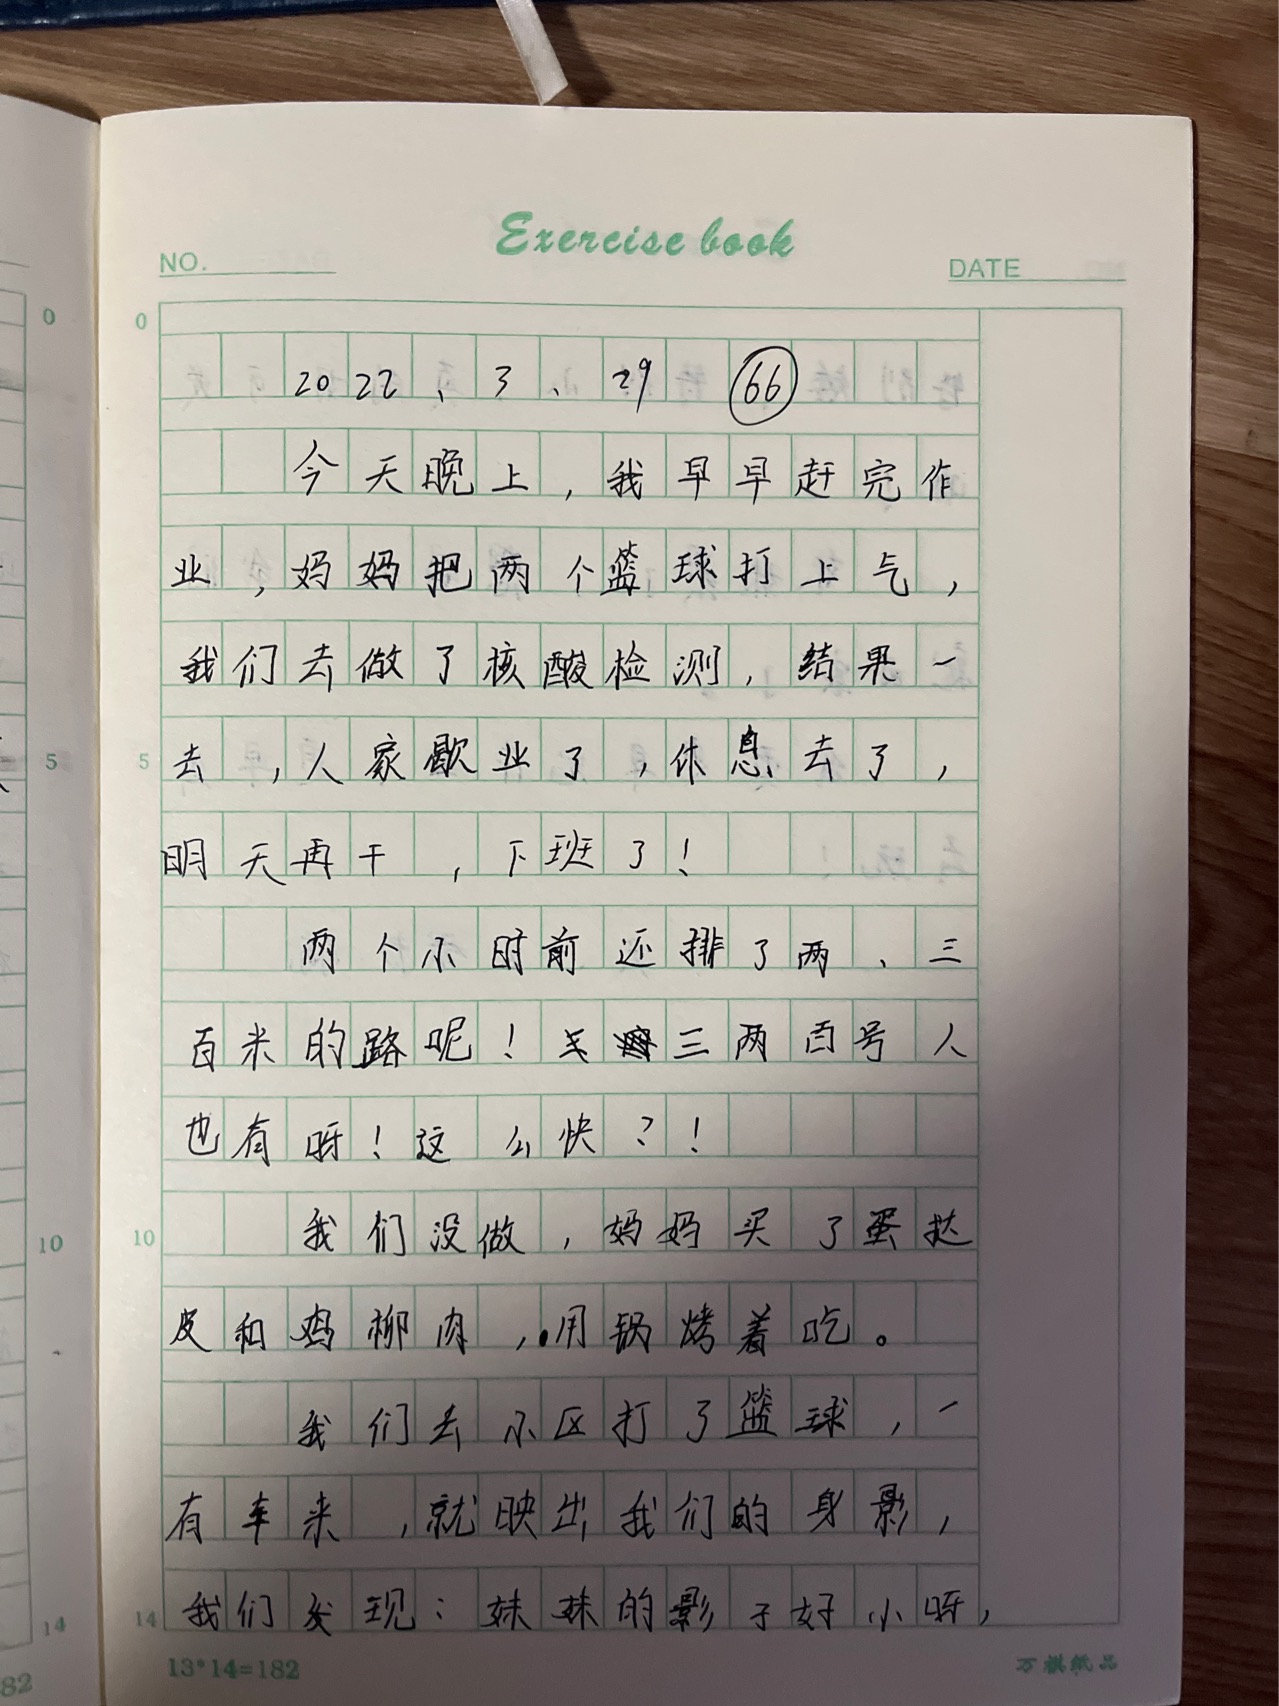 Exercise book
NO.
DATE
0
0
2022、3、29 66
今天晚上，我早早赶完作
业，妈妈把两个篮球打上气，
我们去做了核酸检测，结果一
5
5
去，人家歇业了，休息去了，
明天再干，下班了！
两个小时前还排了两、三
百米的路呢！三两百号人
也有呀！这么快？！
10
10
我们没做，妈妈买了蛋挞
皮和鸡柳肉，用锅烤着吃。
我们去小区打了篮球，一
有车来，就映出我们的身影，
14
14
我们发现：妹妹的影子好小呀，
82
13*14=182
万棋纸品